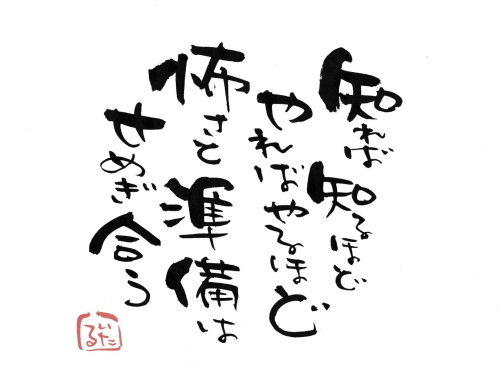 知れば知るほど
やればやるほど
怖さと準備は
せめぎ合う